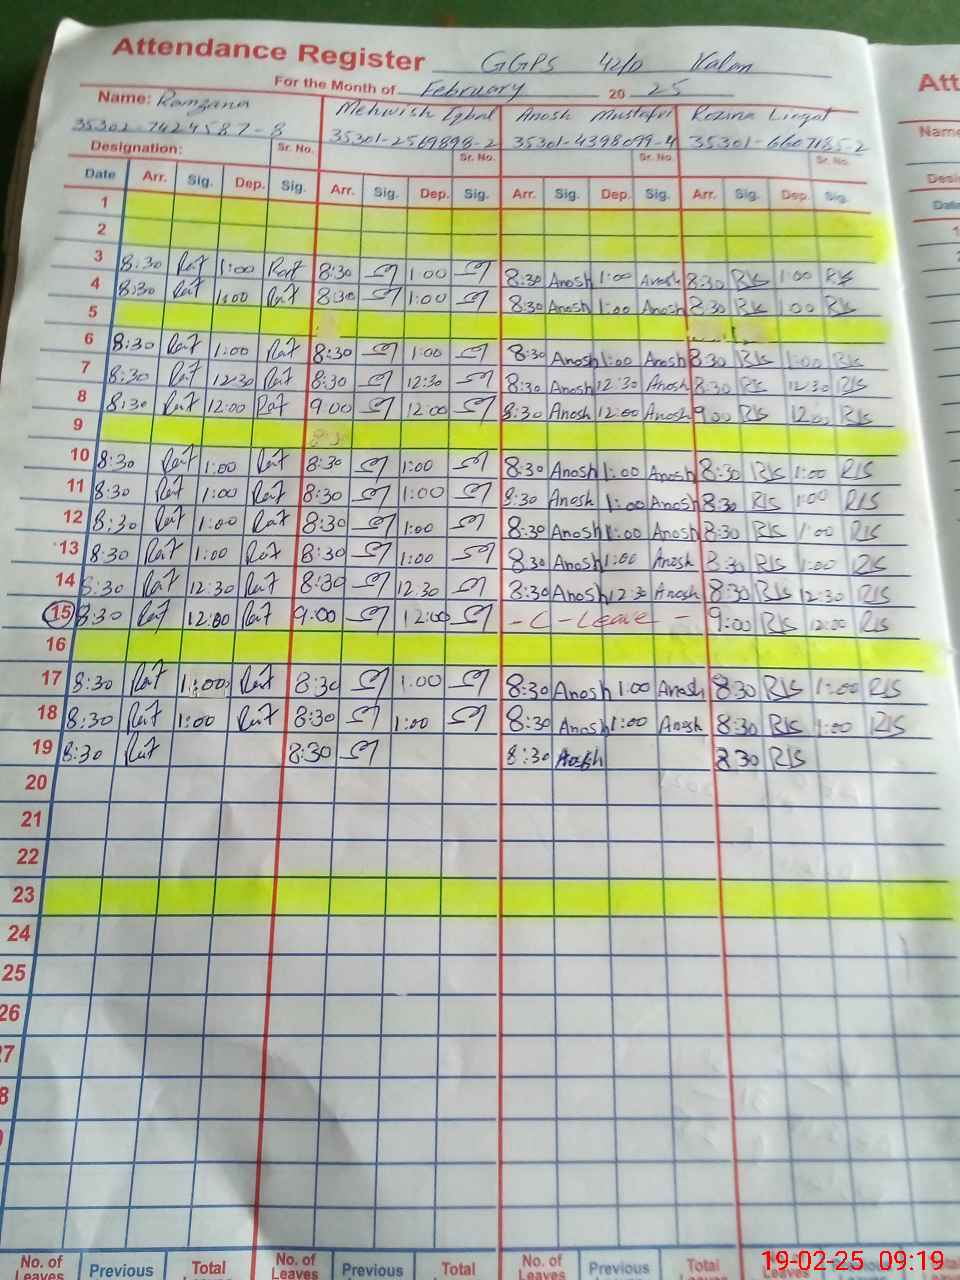 Attendance Register GGPS 42/D Kalan
For the Month of February 20 25
Name: Ramzana Mehwish Iqbal Anosh Mustafa Rozina Liaqat
35302-7424587-8 35301-2569898-2 35301-4398099-4 35301-6607185-2
Designation: Sr. No. Sr. No. Sr. No. Sr. No.
Date Arr. Sig. Dep. Sig. Arr. Sig. Dep. Sig. Arr. Sig. Dep. Sig. Arr. Sig. Dep. Sig.
1
2
3 8:30 1:00 8:30 1:00 8:30 Anosh 1:00 Anosh 8:30 RIS 1:00 RIS
4 8:30 1:00 8:30 1:00 8:30 Anosh 1:00 Anosh 8:30 RIS 1:00 RIS
5
6 8:30 1:00 8:30 1:00 8:30 Anosh 1:00 Anosh 8:30 RIS 1:00 RIS
7 8:30 12:30 8:30 12:30 8:30 Anosh 12:30 Anosh 8:30 RIS 12:30 RIS
8 8:30 12:00 9:00 12:00 8:30 Anosh 12:00 Anosh 9:00 RIS 12:00 RIS
9
10 8:30 1:00 8:30 1:00 8:30 Anosh 1:00 Anosh 8:30 RIS 1:00 RIS
11 8:30 1:00 8:30 1:00 8:30 Anosh 1:00 Anosh 8:30 RIS 1:00 RIS
12 8:30 1:00 8:30 1:00 8:30 Anosh 1:00 Anosh 8:30 RIS 1:00 RIS
13 8:30 1:00 8:30 1:00 8:30 Anosh 1:00 Anosh 8:30 RIS 1:00 RIS
14 8:30 12:30 8:30 12:30 8:30 Anosh 12:30 Anosh 8:30 RIS 12:30 RIS
15 8:30 12:00 9:00 12:00 - C - Leave - 9:00 RIS 12:00 RIS
16
17 8:30 1:00 8:30 1:00 8:30 Anosh 1:00 Anosh 8:30 RIS 1:00 RIS
18 8:30 1:00 8:30 1:00 8:30 Anosh 1:00 Anosh 8:30 RIS 1:00 RIS
19 8:30 8:30 8:30 Anosh 8:30 RIS
20
21
22
23
24
25
26
7
8
No. of Leaves Previous Total No. of Leaves Previous Total No. of Leaves Previous Total
19-02-25 09:19
Att
Name
Date